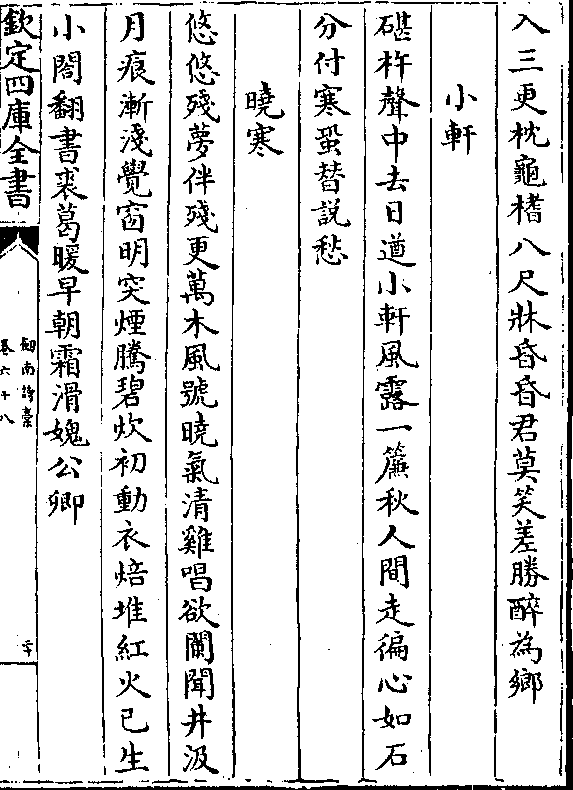 入三更枕龜橏八尺牀昏昏君莫笑差勝醉為鄉
小軒
碪杵聲中去日遒小軒風露一簾秋人間走徧心如石
分付寒蛩替説愁
曉寒
悠悠殘夢伴殘更萬木風號曉氣清雞唱欲闌聞井汲
月痕漸淺覺窗明突煙騰碧炊初動衣焙堆紅火已生
小閤翻書裘葛暖早朝霜滑媿公卿
欽定四庫全書
劍南詩稾
卷六十八